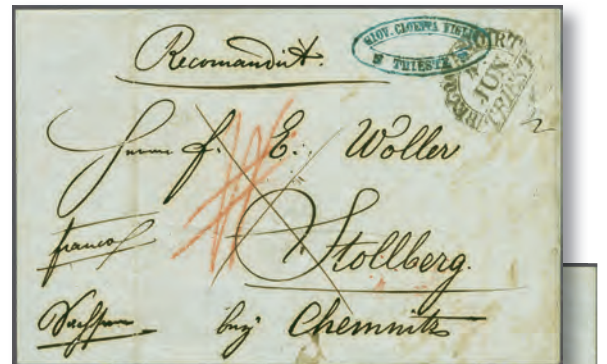 Recomandirt.
GIOV. CLOETTA
TRIESTE
JUN
Herrn F. E. Woller
franco
Stollberg.
Sachsen bey Chemnitz